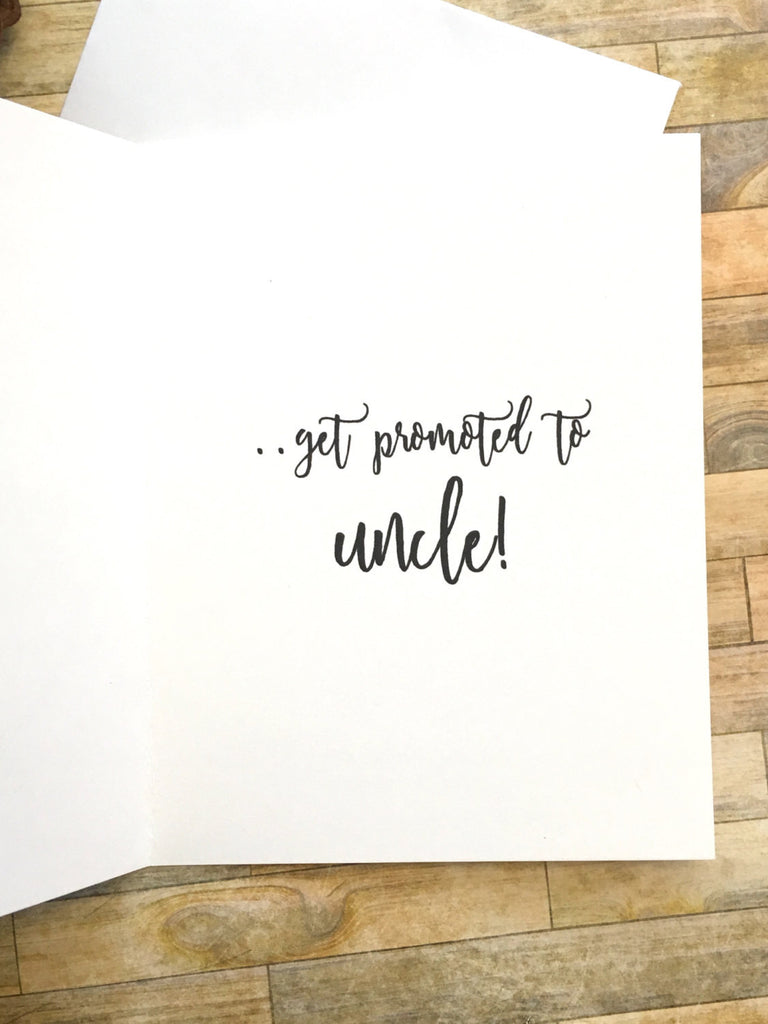 ..get promoted to
uncle!